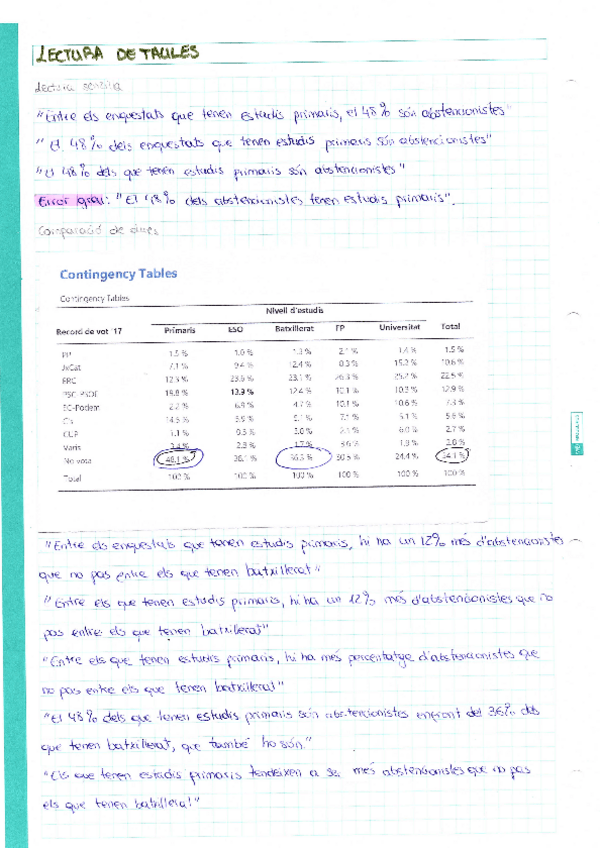 LECTURA DE TAULES
Lectura senzilla
"Entre els enquestats que tenen estudis primaris, el 48% són abstencionistes"
"El 48% dels enquestats que tenen estudis primaris són abstencionistes"
"El 48% dels que tenen estudis primaris són abstencionistes"
Error greu: "El 48% dels abstencionistes tenen estudis primaris".
Comparació de dues
Contingency Tables
Contingency Tables
Nivell d'estudis
Record de vot '17 Primaris ESO Batxillerat FP Universitat Total
PP 1.5 % 1.0 % 1.3 % 2.1 % 1.4 % 1.5 %
JxCat 7.1 % 9.4 % 12.4 % 15.2 % 10.6 %
ERC 12.3 % 23.9 % 23.1 % 26.3 % 25.7 % 22.5 %
PSC-PSOE 19.8 % 13.9 % 12.4 % 10.1 % 10.3 % 12.9 %
EC-Podem 2.2 % 6.9 % 4.7 % 10.1 % 10.6 % 7.3 %
Cs 7.1 % 5.1 %
CUP 1.1 % 0.5 % 3.0 % 2.1 % 6.0 % 2.7 %
Varis 3.4 % 2.3 % 1.7 % 3.6 % 1.9 %
No vota 48.1 % 36.3 % 30.5 % 24.4 % 34.1 %
Total 100 % 100 % 100 % 100 % 100 % 100 %
"Entre els enquestats que tenen estudis primaris, hi ha un 12% més d'abstencionistes
que no pas entre els que tenen batxillerat"
"Entre els que tenen estudis primaris, hi ha un 12% més d'abstencionistes que no
pas entre els que tenen batxillerat"
"Entre els que tenen estudis primaris, hi ha més percentatge d'abstencionistes que
no pas entre els que tenen batxillerat"
"El 48% dels que tenen estudis primaris són abstencionistes enfront del 36% dels
que tenen batxillerat, que també ho són."
"Els que tenen estudis primaris tendeixen a ser més abstencionistes que no pas
els que tenen batxillerat"